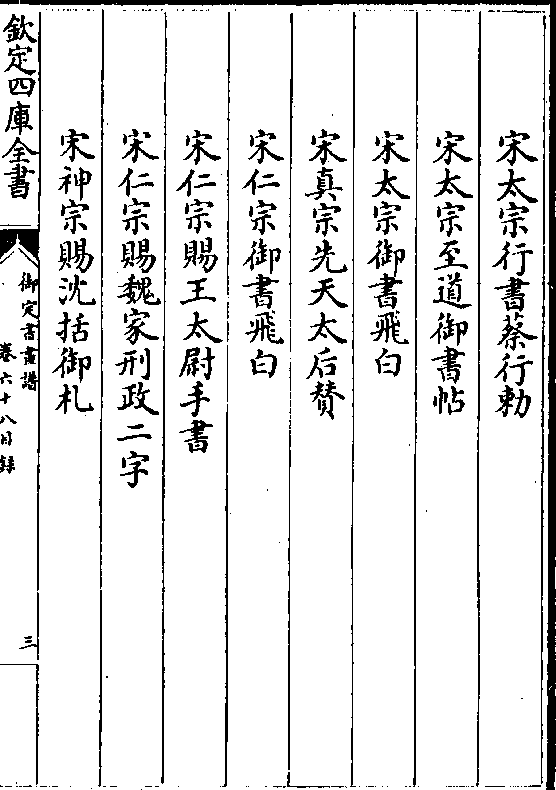 宋太宗行書蔡行勅
宋太宗至道御書帖
宋太宗御書飛白
宋真宗先天太后賛
宋仁宗御書飛白
宋仁宗賜王太尉手書
宋仁宗賜魏家刑政二字
宋神宗賜沈括御札
欽定四庫全書
御定書畫譜
卷六十八目録
三